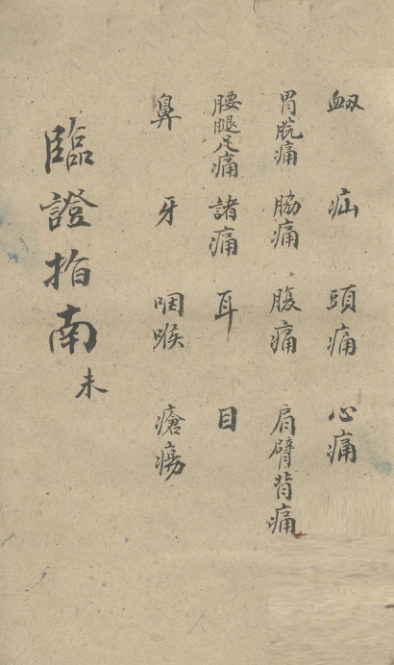 衂 疝 頭痛 心痛
胃脘痛 脇痛 腹痛 肩臂背痛
腰腿足痛 諸痛 耳 目
鼻 牙 咽喉 瘡瘍
臨證指南 未